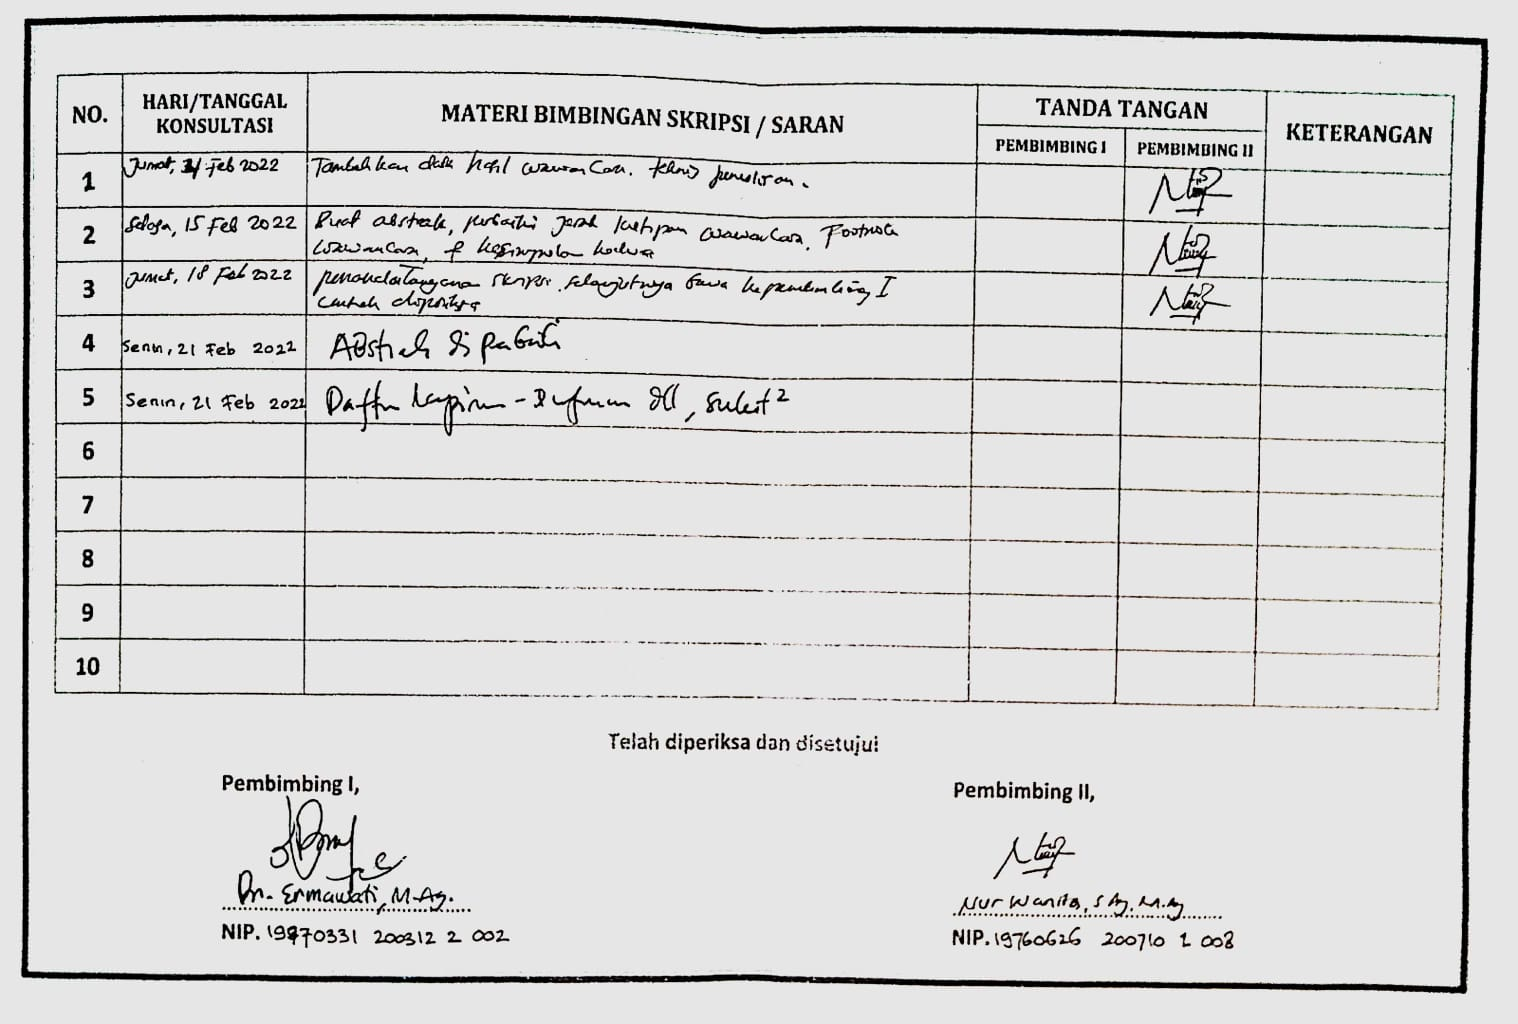 NO.
HARI/TANGGAL
KONSULTASI
MATERI BIMBINGAN SKRIPSI / SARAN
TANDA TANGAN
PEMBIMBING I
PEMBIMBING II
KETERANGAN
1
Jumat, Feb 2022
Tambahkan data hasil wawancara.
2
Selasa, 15 Feb 2022
Buat abstrak, perbaiki kutipan wawancara, Footnote
wawancara, & kesimpulan
3
Jumat, 18 Feb 2022
penandatanganan skripsi, selanjutnya bawa ke pembimbing I
4
Senin, 21 Feb 2022
Abstrak di perbaiki
5
Senin, 21 Feb 2022
Daftar dll,
6
7
8
9
10
Telah diperiksa dan disetujui
Pembimbing I,
Dr. Ermawati, M.Ag.
NIP. 19770331 200312 2 002
Pembimbing II,
Nur Wanita, S.Ag, M.Ag
NIP. 19760626 200710 2 008